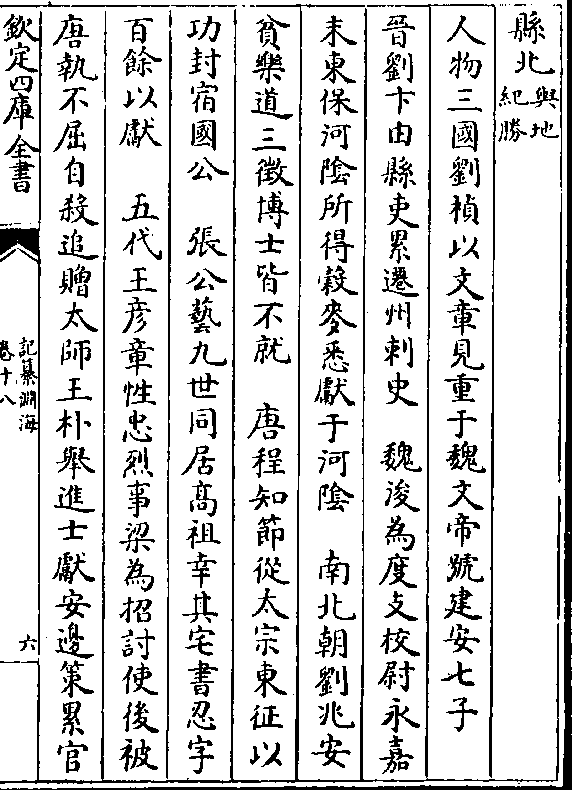 縣北輿地紀勝
人物三國劉楨以文章見重于魏文帝號建安七子
晉劉卞由縣吏累遷州刺史　魏浚為度支校尉永嘉
末東保河陰所得穀麥悉獻于河陰　南北朝劉兆安
貧樂道三徵博士皆不就　唐程知節從太宗東征以
功封宿國公　張公藝九世同居髙祖幸其宅書忍字
百餘以獻　五代王彦章性忠烈事梁為招討使後被
唐執不屈自殺追贈太師王朴舉進士獻安邊策累官
欽定四庫全書
記纂淵海
卷十八
六